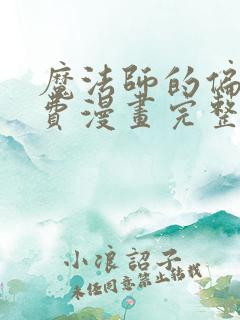 魔法師的偏
費漫畫完整
小浪詔子
未任同意禁止转载